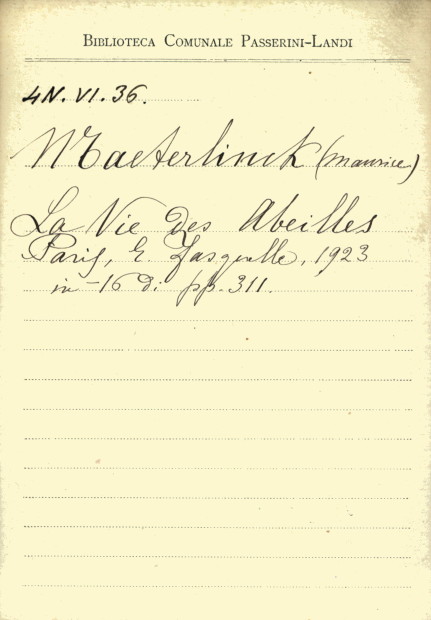 BIBLIOTECA COMUNALE PASSERINI-LANDI
4N. VI. 36.
Maeterlinck (Maurice)
La Vie des Abeilles
Paris, E. Fasquelle, 1923
in-16 di pp. 311.